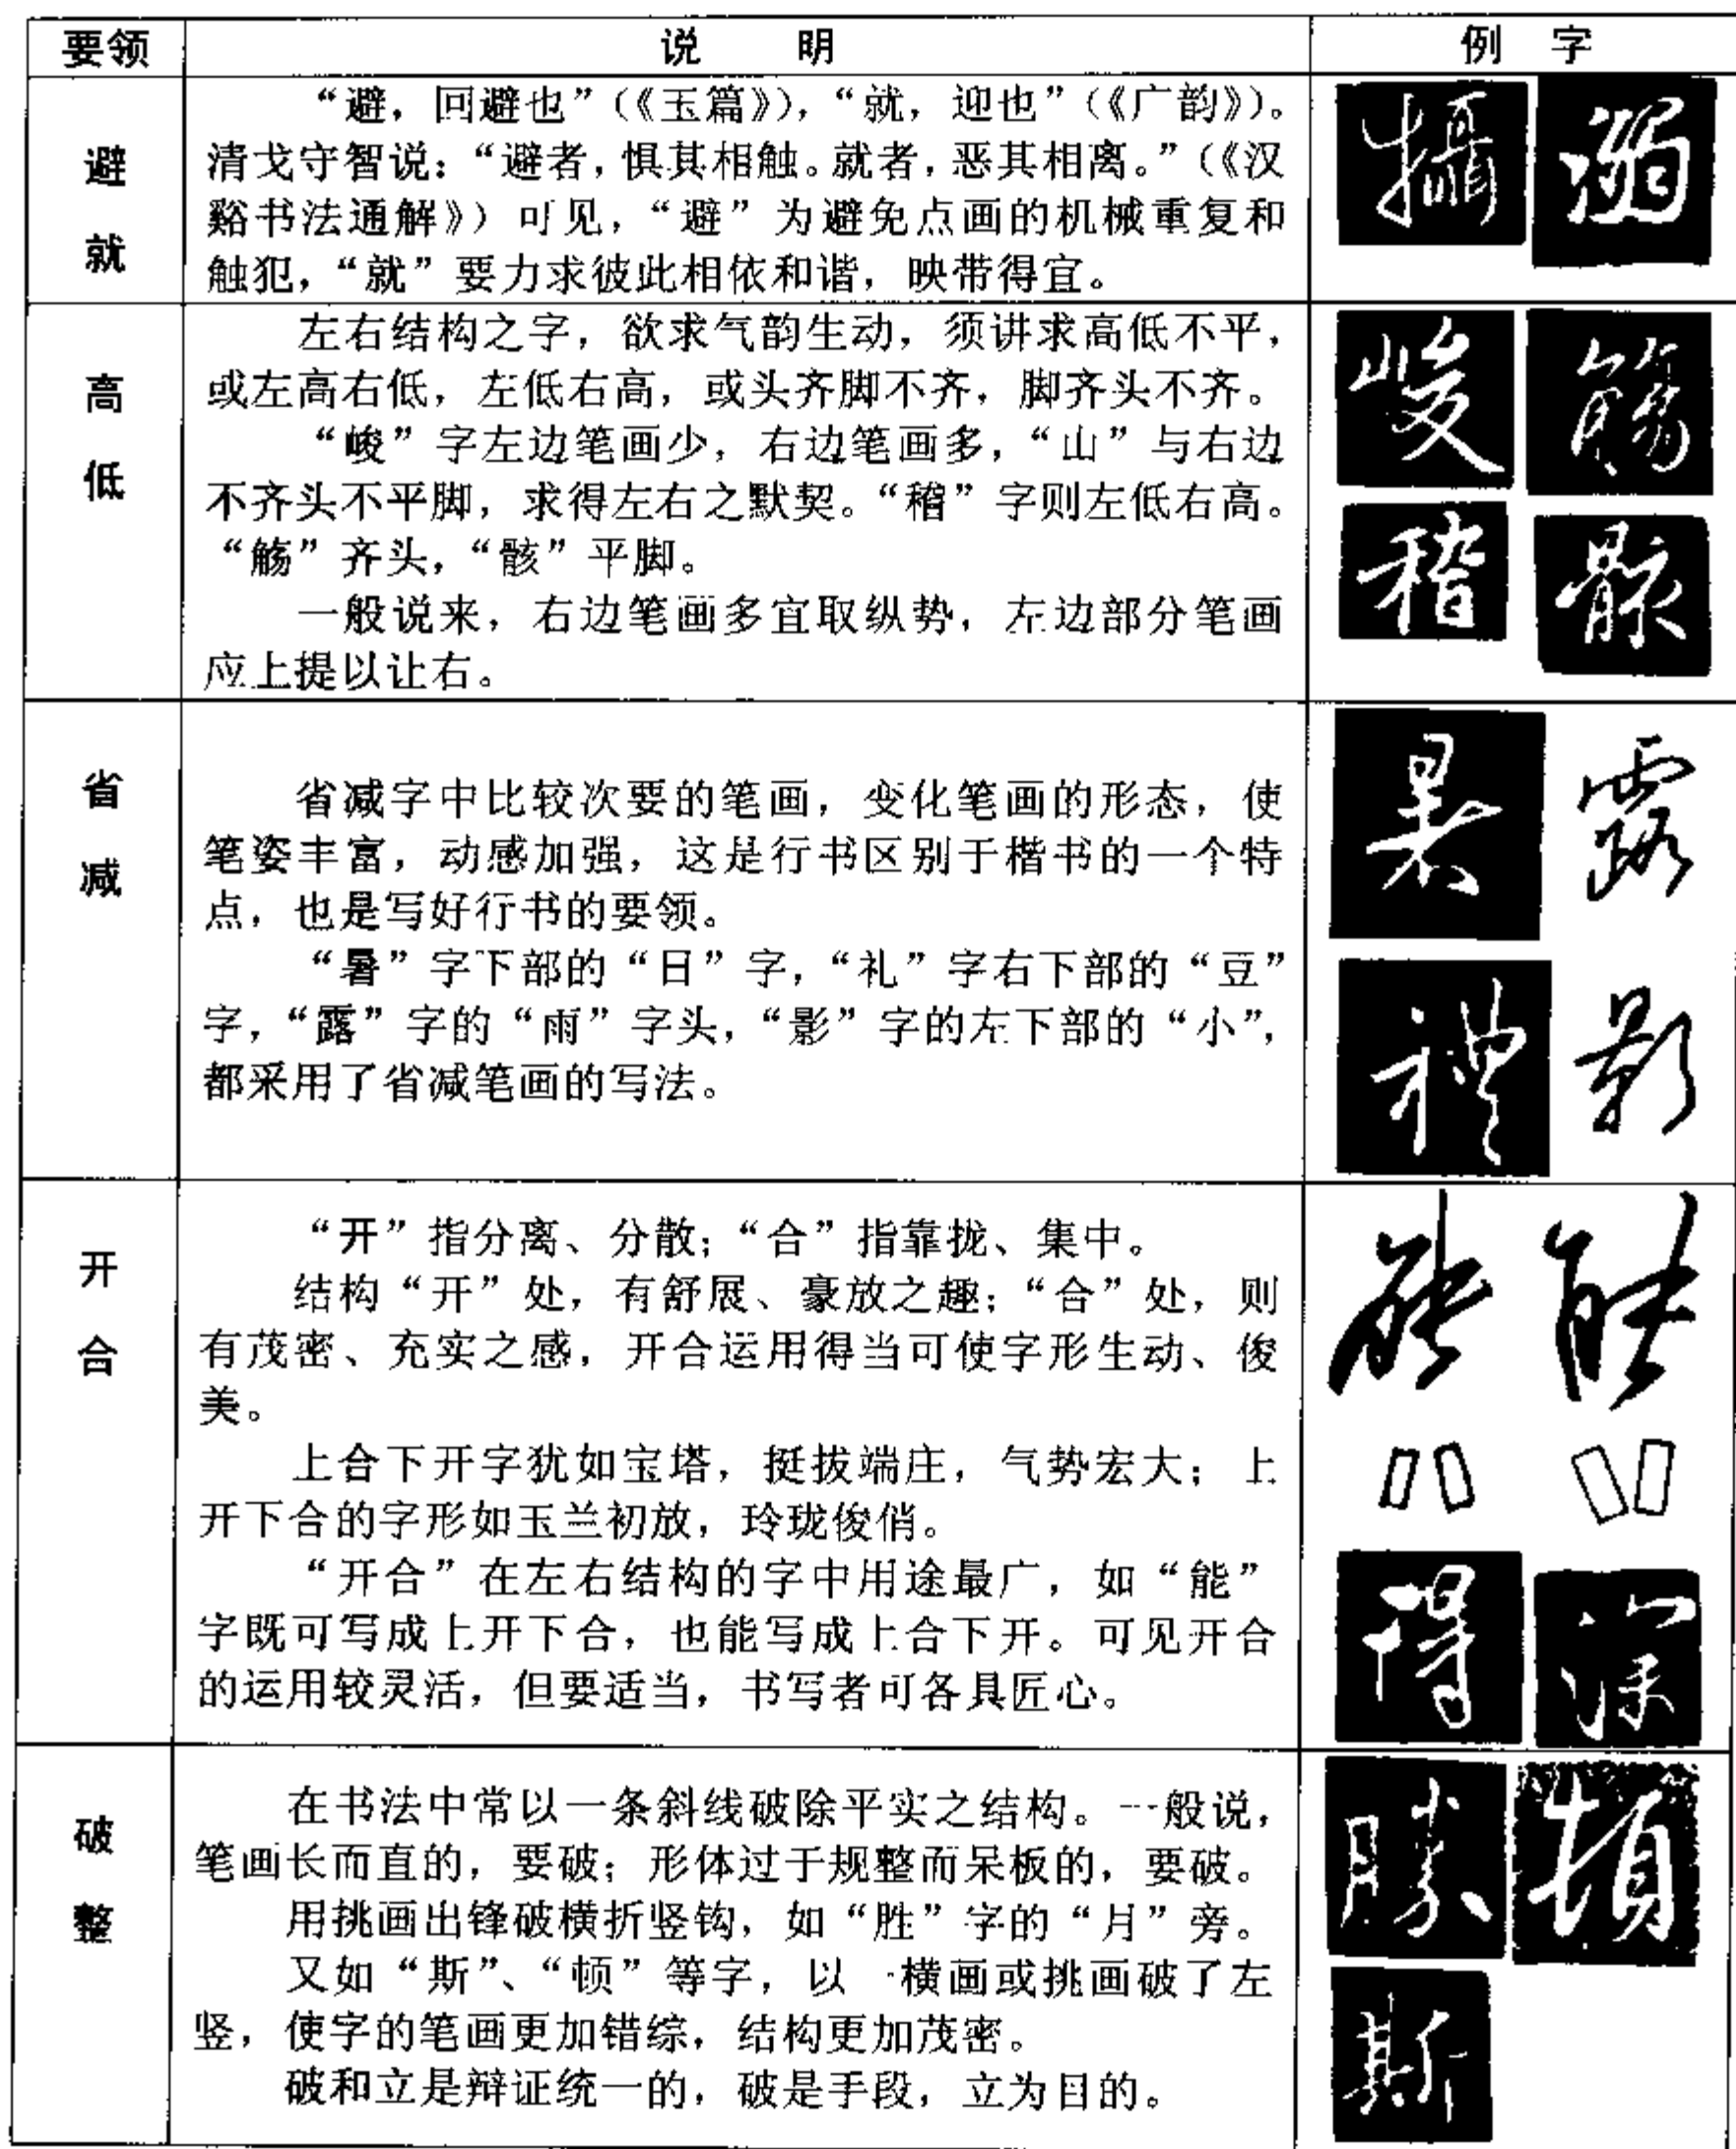 要领 说 明 例 字
避就
“避，回避也”（《玉篇》），“就，迎也”（《广韵》）。
清戈守智说：“避者，惧其相触。就者，恶其相离。”（《汉
谿书法通解》）可见，“避”为避免点画的机械重复和
触犯，“就”要力求彼此相依和谐，映带得宜。
攝 溺
高低
左右结构之字，欲求气韵生动，须讲求高低不平，
或左高右低，左低右高，或头齐脚不齐，脚齐头不齐。
“峻”字左边笔画少，右边笔画多，“山”与右边
不齐头不平脚，求得左右之默契。“稽”字则左低右高。
“觞”齐头，“骸”平脚。
一般说来，右边笔画多宜取纵势，左边部分笔画
应上提以让右。
峻 觴
稽 骸
省减
省减字中比较次要的笔画，变化笔画的形态，使
笔姿丰富，动感加强，这是行书区别于楷书的一个特
点，也是写好行书的要领。
“暑”字下部的“日”字，“礼”字右下部的“豆”
字，“露”字的“雨”字头，“影”字的左下部的“小”，
都采用了省减笔画的写法。
暑 露
禮 影
开合
“开”指分离、分散；“合”指靠拢、集中。
结构“开”处，有舒展、豪放之趣；“合”处，则
有茂密、充实之感，开合运用得当可使字形生动、俊
美。
上合下开字犹如宝塔，挺拔端庄，气势宏大；上
开下合的字形如玉兰初放，玲珑俊俏。
“开合”在左右结构的字中用途最广，如“能”
字既可写成上开下合，也能写成上合下开。可见开合
的运用较灵活，但要适当，书写者可各具匠心。
能 能
得 深
破整
在书法中常以一条斜线破除平实之结构。一般说，
笔画长而直的，要破；形体过于规整而呆板的，要破。
用挑画出锋破横折竖钩，如“胜”字的“月”旁。
又如“斯”、“顿”等字，以一横画或挑画破了左
竖，使字的笔画更加错综，结构更加茂密。
破和立是辩证统一的，破是手段，立为目的。
勝 頓
斯